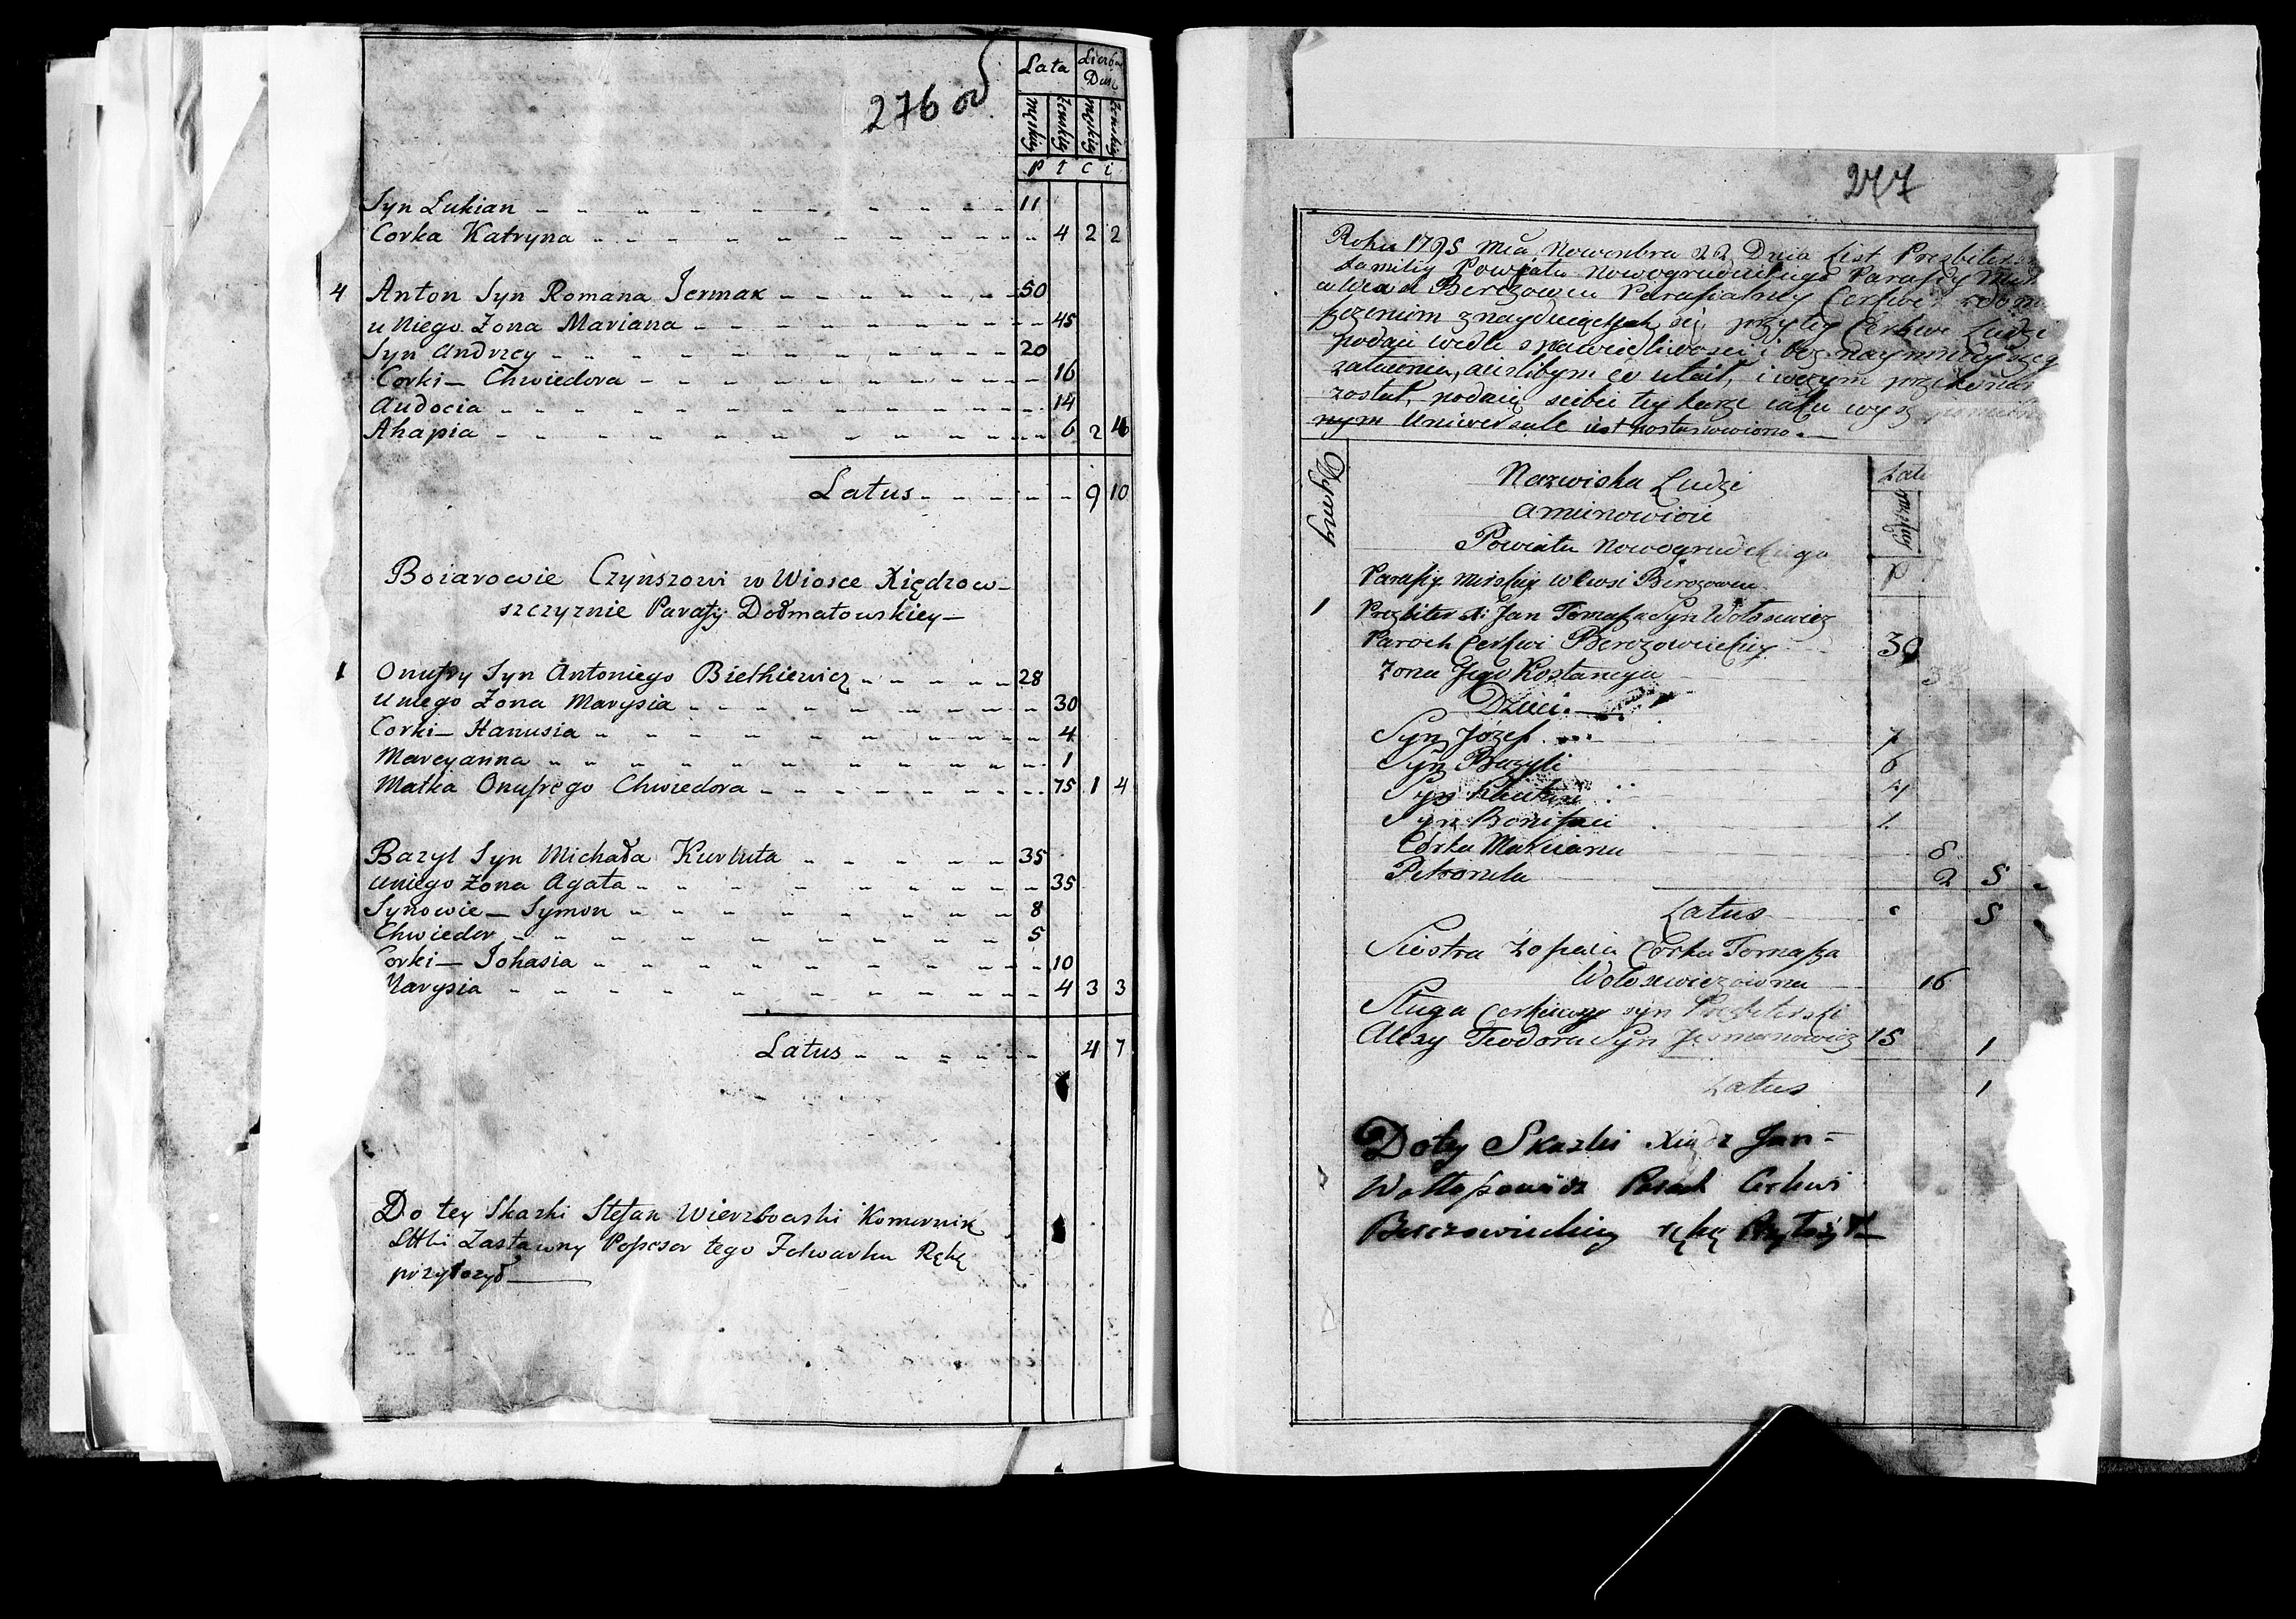 276 od
Lata Liczba Dusz
męskiey żenskiey męskiey żenskiey
P T C i
Syn Łukian 11
Corka Katryna 4 2 2
4 Anton Syn Romana Jermak 50
u Niego Zona Mariana 45
Syn Andrzey 20
Corki — Chwiedora 16
Audocia 14
Ahapia 6 2 4
Latus 9 10
Boiarowie Czynszowi w Wiosce Xiędzow-
szczyznie Parafÿ Dołmatowskiey —
1 Onufry Syn Antoniego Bielkiewicz 28
u niego Zona Marysia 30
Corki — Hanusia 4
Marcyanna 1
Matka Onufrego Chwiedora 75 1 4
Bazyl Syn Michała Kurłuta 35
u niego Zona Agata 35
Synowie — Symon 8
Chwiedor 5
Corki — Johasia 10
Marysia 4 3 3
Latus 4 7
Do tey Skazki Stefan Wierzbowski Komornik
Zastawny Possesor tego Folwarku Rękę
przyłożył
277
Roku 1795 Mca Nowembra 22 Dnia List Prezbitersk
Familiy Powiatu Nowogrudzkiego Parafiy
Berezowcu Parafialney Cerkwi
znayduiących się przy tey Cerkwi Ludzi
podaię wedle sprawiedliwości i bez naymnieyszeg
zataienia, a ieslibym co utaił, i w czym przekonan
został, podaię siebie tey karze iaka wyż
nym Uniwersale iest postanowiono.
Dymy
Nazwiska Ludzi
a mianowicie
Powiatu Nowogrudzkiego
Parafiy Mirskiey w Wsi Berezowcu
Lata
męskiey
P
1 Prezbiter X: Jan Tomasza Syn Wołosewicz
Paroch Cerkwi Berezowieckiey 30
Zona Jego Kostancya
Dzieci.
Syn Józef 7
Syn Bazyli 6
Syn 4
Syn Bonifaci 1
Córka Marcianna 8
Petronela 2 5
Latus 5
Siostra Zofiaia Corka Tomasza
Wołosewiczowna 16
Sługa Cerkiewny syn Prezbiterski
Alexy Teodora Syn Jesmanowicz 15 1
Latus 1
Do tey Skazki Xiądz Jan
Wołłosowicz Paroch Cerkwi
Berezowieckiey rękę Przyłożył